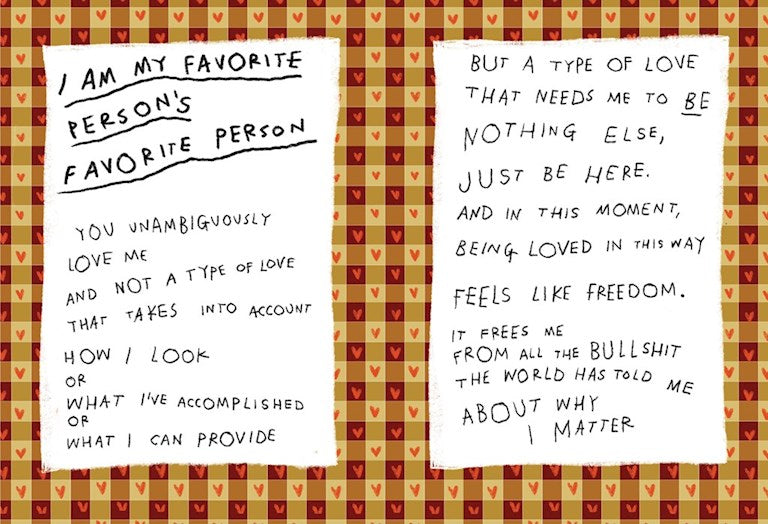 I AM MY FAVORITE
PERSON'S
FAVORITE PERSON
YOU UNAMBIGUOUSLY
LOVE ME
AND NOT A TYPE OF LOVE
THAT TAKES INTO ACCOUNT
HOW I LOOK
OR
WHAT I'VE ACCOMPLISHED
OR
WHAT I CAN PROVIDE
BUT A TYPE OF LOVE
THAT NEEDS ME TO BE
NOTHING ELSE,
JUST BE HERE.
AND IN THIS MOMENT,
BEING LOVED IN THIS WAY
FEELS LIKE FREEDOM.
IT FREES ME
FROM ALL THE BULLSHIT
THE WORLD HAS TOLD ME
ABOUT WHY
I MATTER